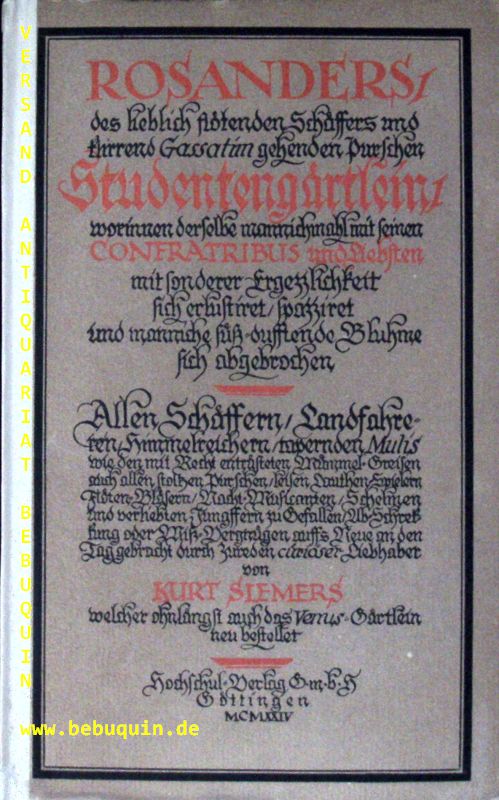 ROSANDERS/
des lieblich flötenden Schäffers und
klirrend Gassatim gehenden Purschen
Studentengärtlein/
worinnen derselbe mannichmahl mit seinen
CONFRATRIBUS und Liebsten
mit sonderer Ergezzlichkeit
sich erlustiret/spazziret
und manniche süß-dufftende Bluhme
sich abgebrochen
Allen Schäffern/Landfahre-
ren Himmelreichern/tapernden Mulis
wie den mit Recht entrüsteten Mummel-Greisen
auch allen stolhen Purschen/leisen Lauthen-Spielern
Flöten-Bläsern/Nacht-Musicanten/Schelmen
und verliebten Jungffern zu Gefallen/Ab-Schrek-
kung oder Miß-Vergnügen auffs Neue an den
Tag gebracht durch curiöser Liebhaber
von
KURT SIEMERS
welcher ohnlängst auch das Venus-Gärtlein
neu bestellet
Hochschul-Verlag G·m·b·H
Göttingen
MCMXXIV
VERSAND ANTIQUARIAT BEBUQUIN
www.bebuquin.de